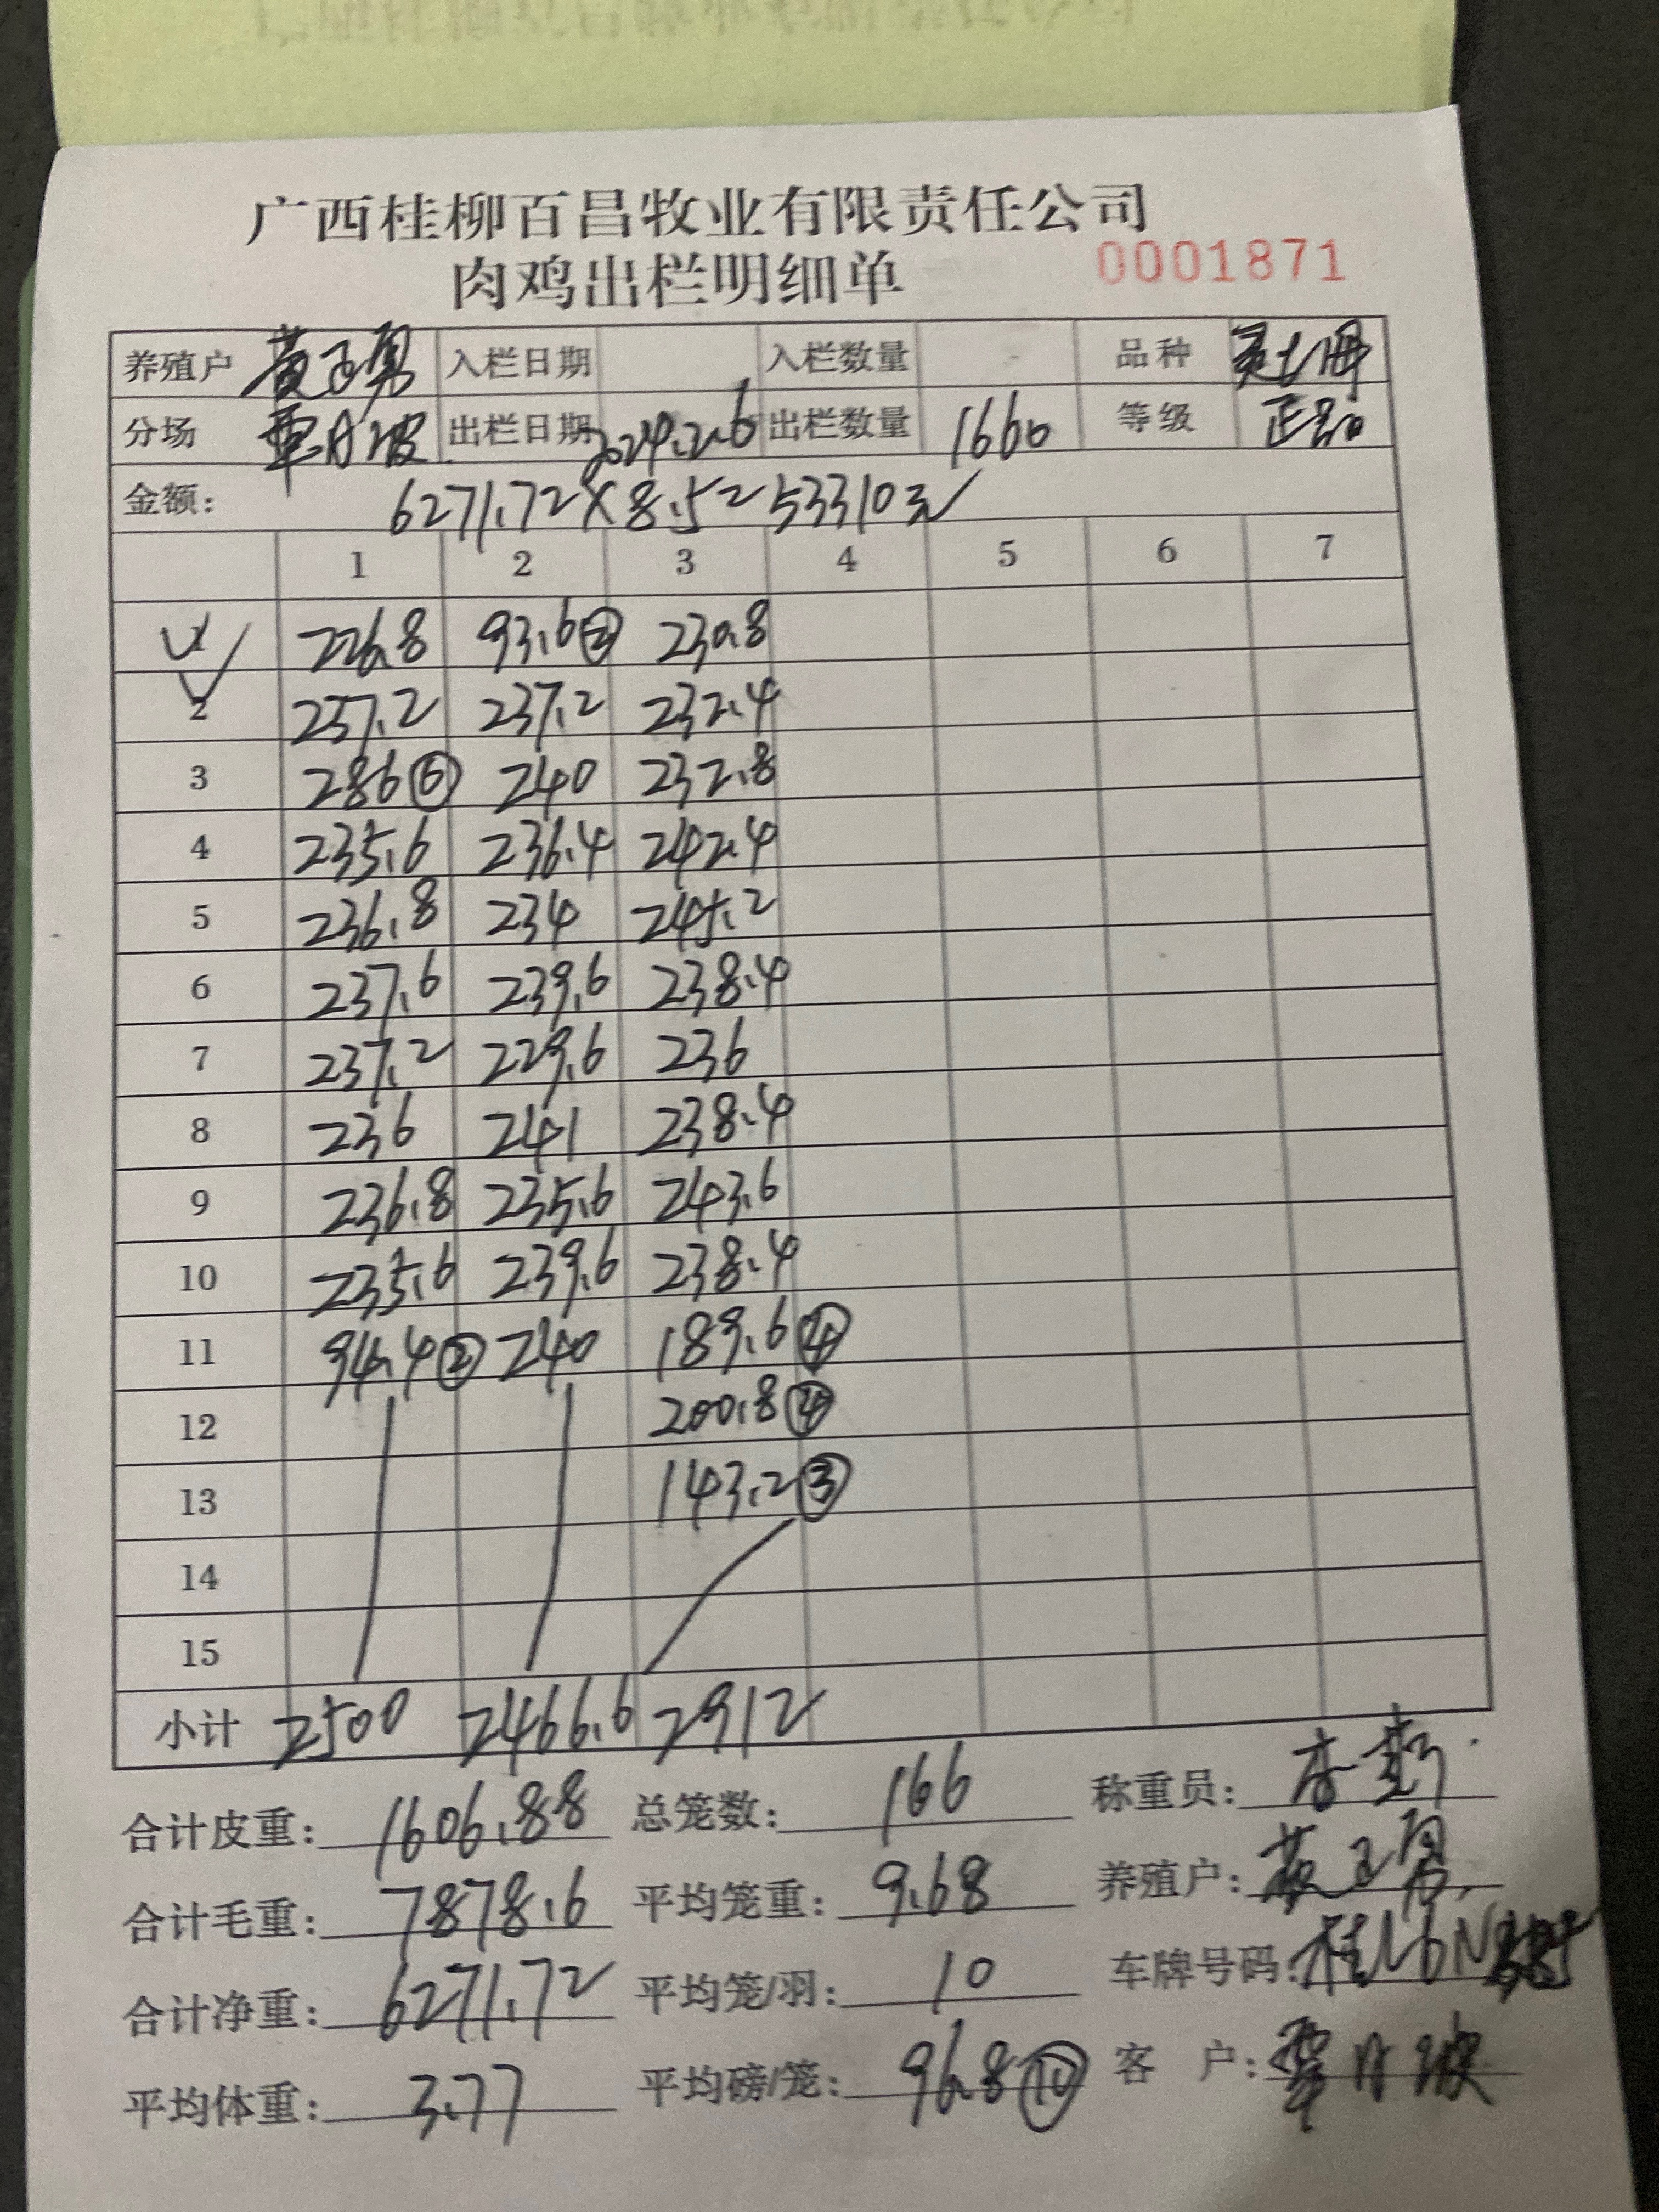 广西桂柳百昌牧业有限责任公司
肉鸡出栏明细单 0001871
养殖户 黄 勇 入栏日期 入栏数量 品种
分场 覃月波 出栏日期 2024.2.6 出栏数量 1660 等级
金额: 6271.72×8.5 53310元
1 2 3 4 5 6 7
1 226.8 93.6② 230.8
2 237.2 237.2 232.4
3 286⑥ 240 232.8
4 235.6 236.4 242.4
5 236.8 234 245.2
6 237.6 239.6 238.4
7 237.2 229.6 236
8 236 241 238.4
9 236.8 235.6 243.6
10 235.6 239.6 238.4
11 94.4② 240 189.6④
12 200.8④
13 143.2③
14
15
小计 2500 2466.6 2912
合计皮重: 1606.88 总笼数: 166 称重员:
合计毛重: 7878.6 平均笼重: 9.68 养殖户: 黄 勇
合计净重: 6271.72 平均笼/羽: 10 车牌号码: 桂
平均体重: 3.77 平均磅/笼: 96.8⑩ 客 户: 覃月波